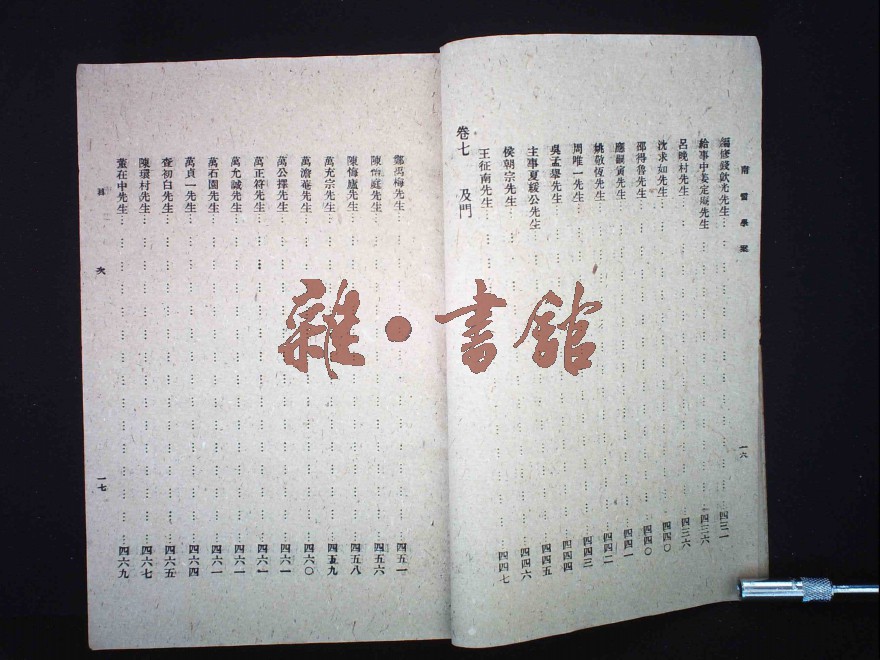 南雷學案
編修錢飲光先生 四三一
給事中姜定庵先生 四三六
呂晚村先生 四三六
沈求如先生 四四〇
邵得魯先生 四四〇
應嗣寅先生 四四一
姚敬恆先生 四四二
周唯一先生 四四三
吳孟舉先生 四四四
主事夏緩公先生 四四五
侯朝宗先生 四四六
王征南先生 四四七
卷七 及門
一六
鄭禹梅先生 四五一
陳怡庭先生 四五六
陳悔廬先生 四五八
萬充宗先生 四五九
萬澹菴先生 四六〇
萬公擇先生 四六一
萬正符先生 四六一
萬允誠先生 四六一
萬石園先生 四六一
萬貞一先生 四六四
查初白先生 四六五
陳環村先生 四六七
董在中先生 四六九
目次
一七
雜·書館